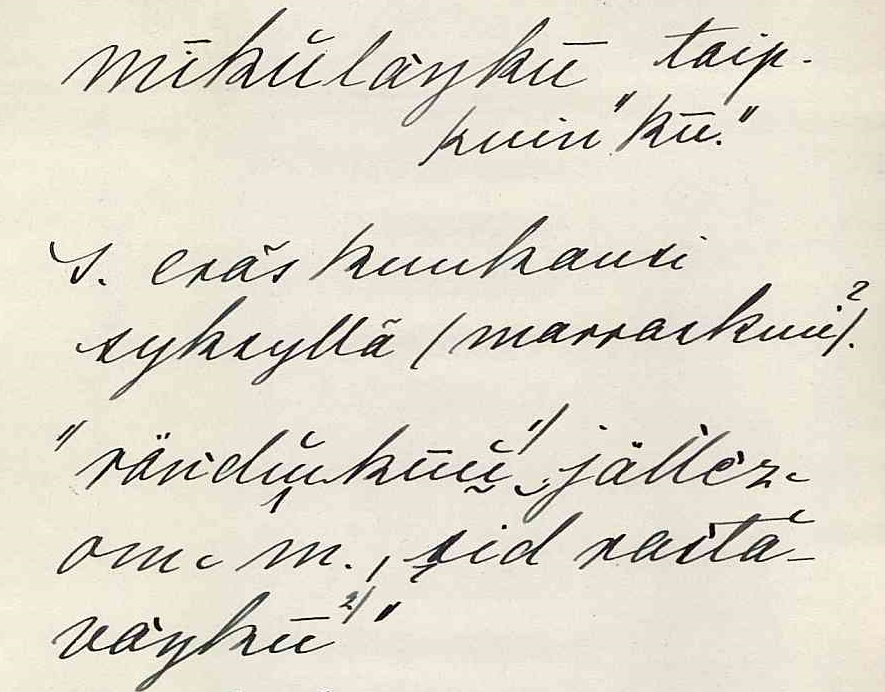 mīkŭlàykū taip.
kuin "kū."
s. eräs kuukausi
syksyllä (marraskuu?).
"rändŭkūŭ¹⁾ jällez
om m., sid rastà-
vàykū²⁾"